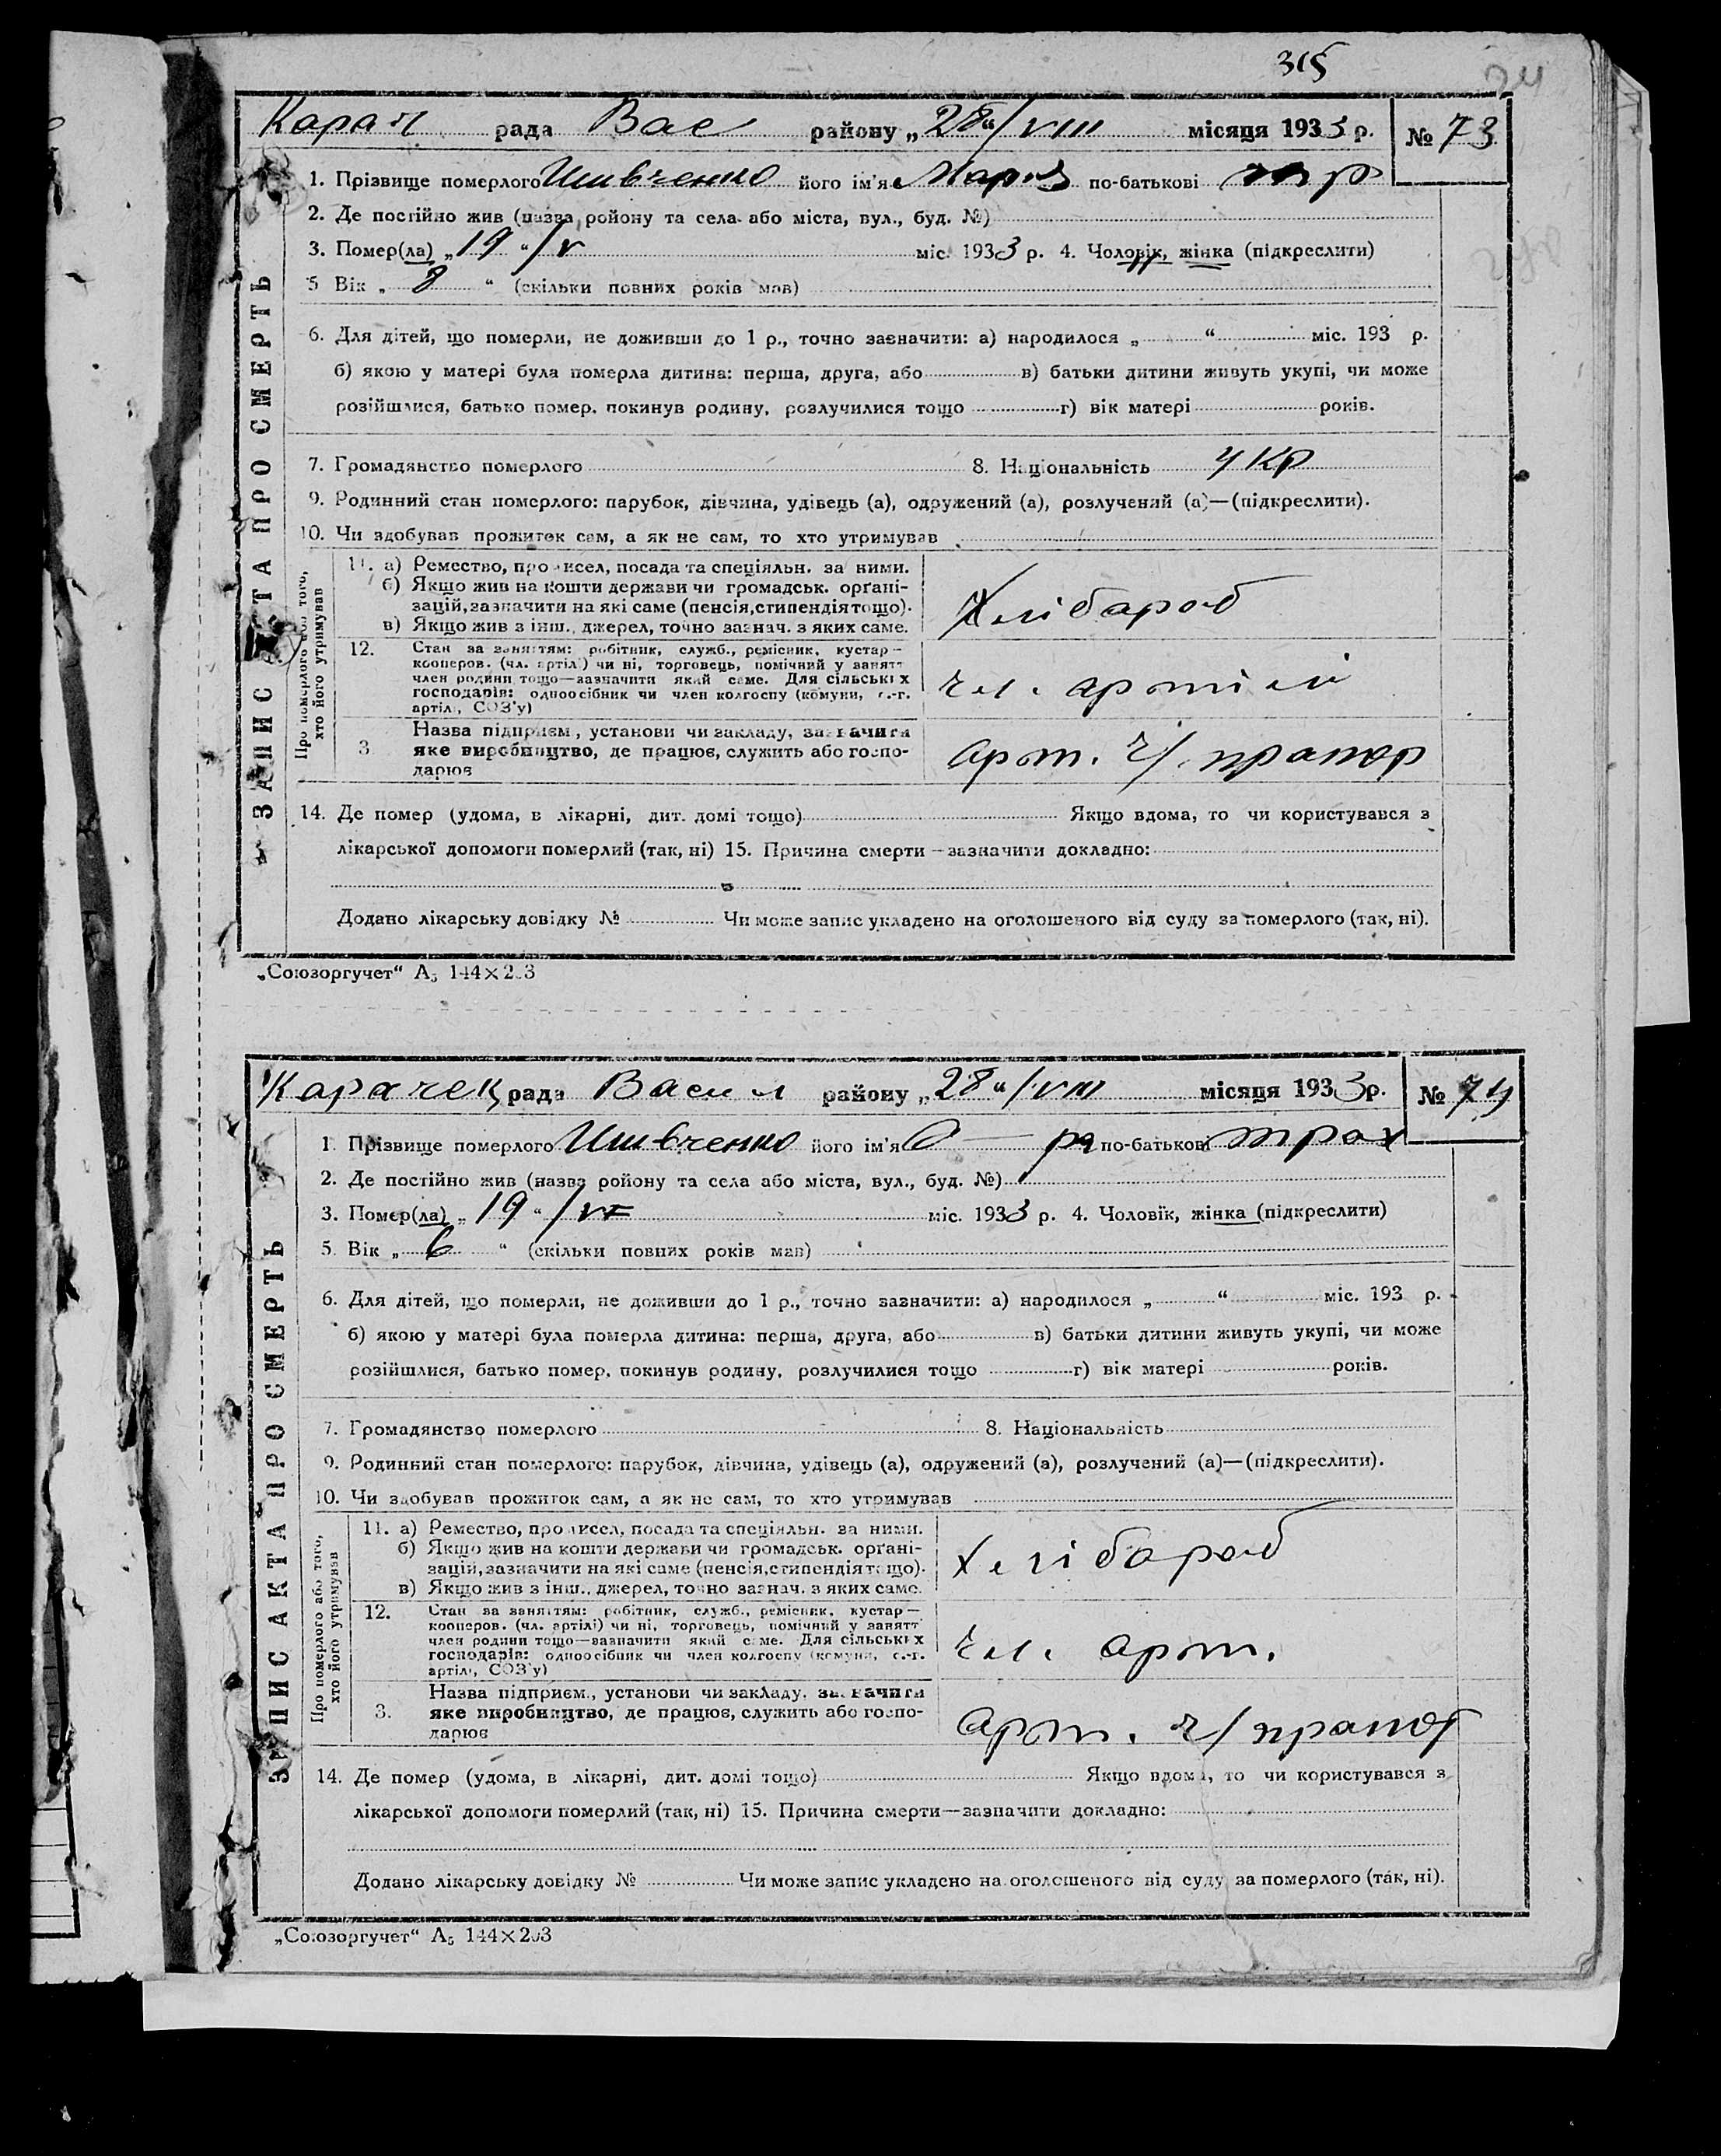 315
Карач рада Вас району „28“/VIII місяця 1933 р. № 73
1. Прізвище померлого Шивченко його ім'я Мария по-батькові тр
2. Де постійно жив (назва ройону та села або міста, вул., буд. №)
3. Помер(ла) „19“/V міс. 1933 р. 4. Чоловік, жінка (підкреслити)
5 Вік „8“ (скільки повних років мав)
6. Для дітей, що померли, не доживши до 1 р., точно зазначити: а) народилося „ “ міс. 193 р.
б) якою у матері була померла дитина: перша, друга, або в) батьки дитини живуть укупі, чи може
розійшлися, батько помер, покинув родину, розлучилися тощо г) вік матері років.
7. Громадянство померлого 8. Національність укр
9. Родинний стан померлого: парубок, дівчина, удівець (а), одружений (а), розлучений (а)—(підкреслити).
10. Чи здобував прожиток сам, а як не сам, то хто утримував
ЗАПИС АКТА ПРО СМЕРТЬ
Про померлого або того, хто його утримував
11. а) Ремество, промисел, посада та спеціяльн. за ними.
б) Якщо жив на кошти держави чи громадськ. орґані-
зацій, зазначити на які саме (пенсія, стипендія тощо).
в) Якщо жив з інш. джерел, точно зазнач. з яких саме.
Хлібароб
12. Стан за заняттям: робітник, служб., ремісник, кустар—
кооперов. (чл. артілі) чи ні, торговець, помічний у занятт
член родини тощо—зазначити який саме. Для сільських
господарів: одноосібник чи член колгоспу (комуни, с.-г.
артілі, СОЗ'у)
чл. артілі
3. Назва підприєм., установи чи закладу, зазначити
яке виробництво, де працює, служить або госпо-
дарює
арт. ч/ прапор
14. Де помер (удома, в лікарні, дит. домі тощо) Якщо вдома, то чи користувався з
лікарської допомоги померлий (так, ні) 15. Причина смерти—зазначити докладно:
Додано лікарську довідку № Чи може запис укладено на оголошеного від суду за померлого (так, ні).
„Союзоргучет“ А5 144×203
Карачек рада Васил району „28“/VIII місяця 1933 р. № 74
1. Прізвище померлого Шивченко його ім'я по-батькові трох
2. Де постійно жив (назва ройону та села або міста, вул., буд. №)
3. Помер(ла) „19“/VI міс. 1933 р. 4. Чоловік, жінка (підкреслити)
5. Вік „6“ (скільки повних років мав)
6. Для дітей, що померли, не доживши до 1 р., точно зазначити: а) народилося „ “ міс. 193 р.
б) якою у матері була померла дитина: перша, друга, або в) батьки дитини живуть укупі, чи може
розійшлися, батько помер, покинув родину, розлучилися тощо г) вік матері років.
7. Громадянство померлого 8. Національність
9. Родинний стан померлого: парубок, дівчина, удівець (а), одружений (а), розлучений (а)—(підкреслити).
10. Чи здобував прожиток сам, а як не сам, то хто утримував
ЗАПИС АКТА ПРО СМЕРТЬ
Про померлого або того, хто його утримував
11. а) Ремество, промисел, посада та спеціяльн. за ними.
б) Якщо жив на кошти держави чи громадськ. орґані-
зацій, зазначити на які саме (пенсія, стипендія тощо).
в) Якщо жив з інш. джерел, точно зазнач. з яких саме.
Хлібароб
12. Стан за заняттям: робітник, служб., ремісник, кустар—
кооперов. (чл. артілі) чи ні, торговець, помічний у занятт
член родини тощо—зазначити який саме. Для сільських
господарів: одноосібник чи член колгоспу (комуни, с.-г.
артілі, СОЗ'у)
чл. арт.
3. Назва підприєм., установи чи закладу, зазначити
яке виробництво, де працює, служить або госпо-
дарює
арт. ч/ прапор
14. Де помер (удома, в лікарні, дит. домі тощо) Якщо вдома, то чи користувався з
лікарської допомоги померлий (так, ні) 15. Причина смерти—зазначити докладно:
Додано лікарську довідку № Чи може запис укладено на оголошеного від суду за померлого (так, ні).
„Союзоргучет“ А5 144×203